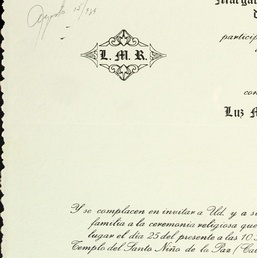 Agosto 15/938
Marga
d
L. M. R.
particip
con
Luz M
Y se complacen en invitar a Ud. y a s
familia a la ceremonia religiosa que
lugar el día 25 del presente a las 10.
Templo del Santo Niño de la Paz (Cal